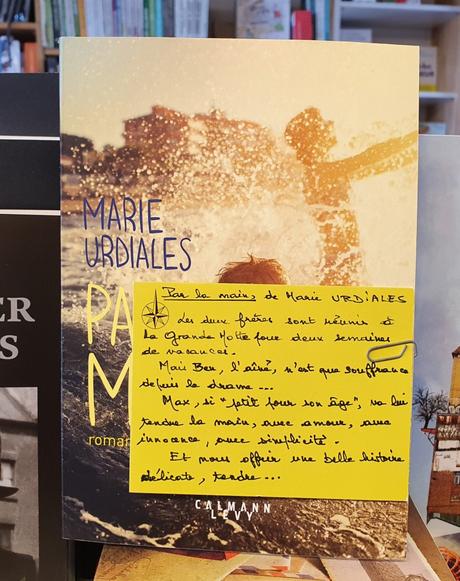 MARIE
URDIALES
PA
M
roman
Par la main, de Marie URDIALES
Les deux frères sont réunis à
La Grande Motte pour deux semaines
de vacances.
Mais Ben, l'aîné, n'est que souffrance
depuis le drame ...
Max, si "petit pour son âge", va lui
tendre la main, avec amour, avec
innocence, avec simplicité.
Et nous offrir une belle histoire
délicate, tendre ...
CALMANN
LEVY
ER
S